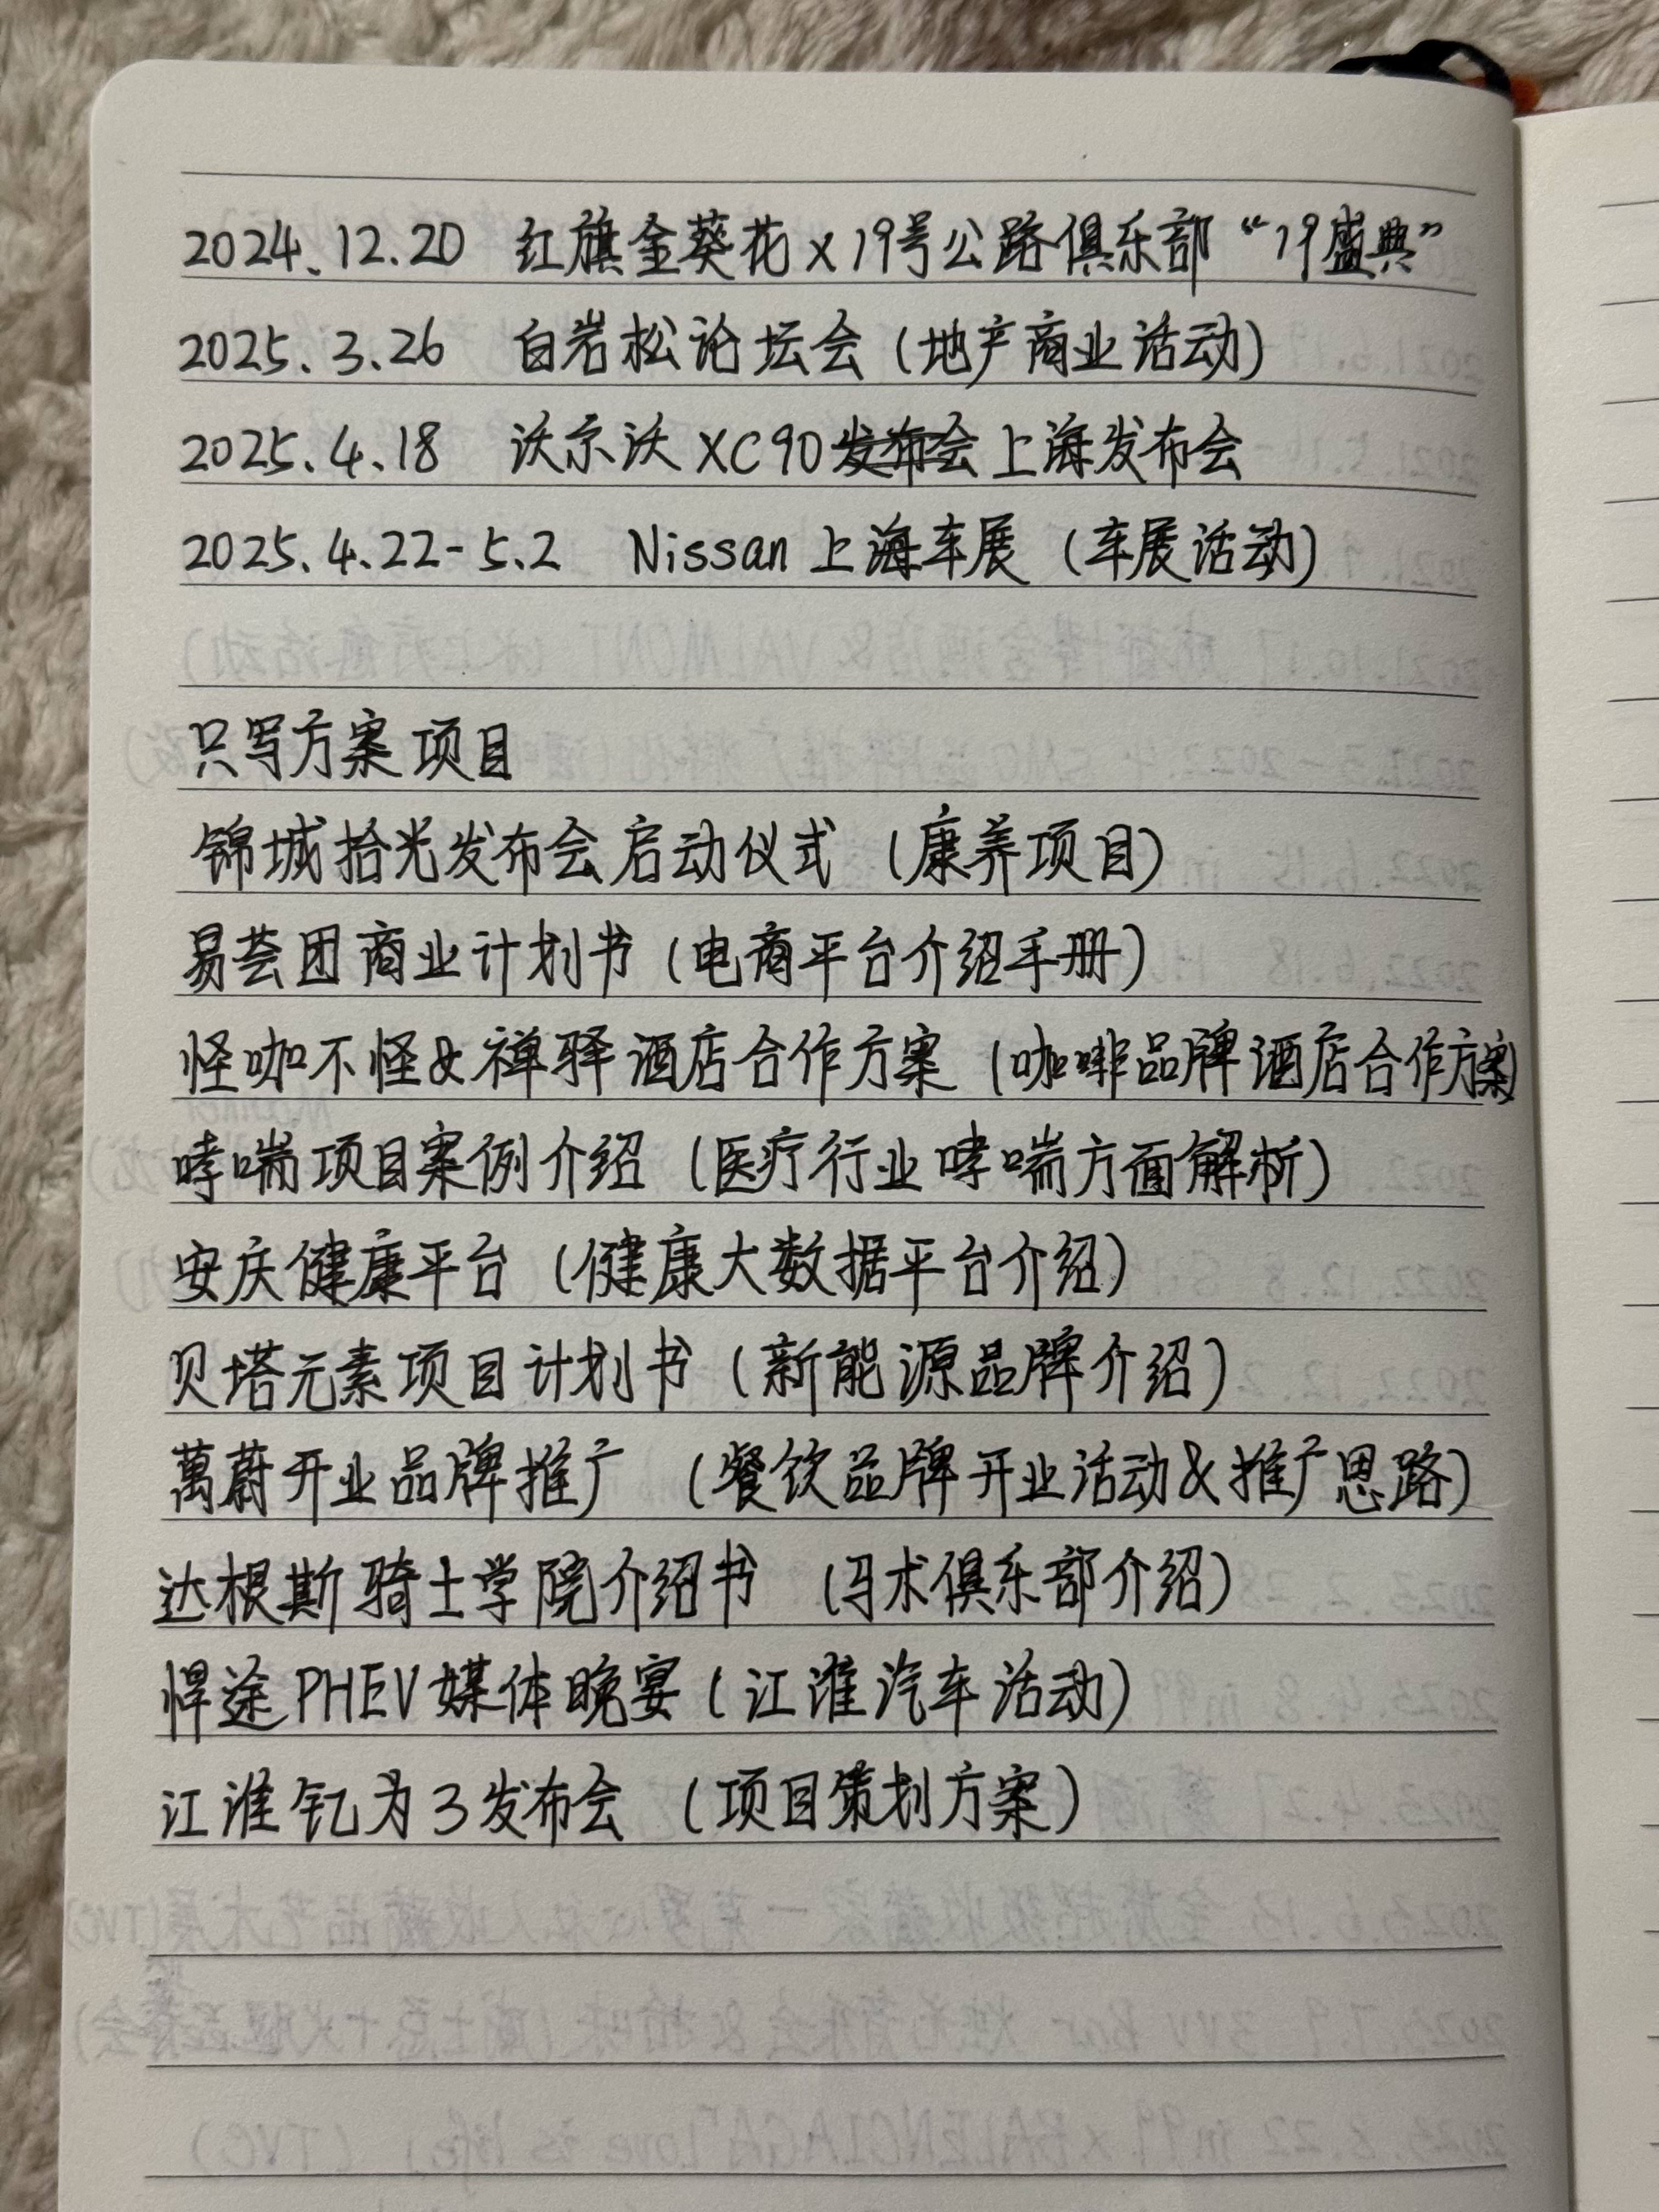 2024.12.20 红旗金葵花x19号公路俱乐部“19盛典”
2025.3.26 白岩松论坛会(地产商业活动)
2025.4.18 沃尔沃XC90发布会上海发布会
2025.4.22-5.2 Nissan上海车展(车展活动)
只写方案项目
锦城拾光发布会启动仪式(康养项目)
易荟团商业计划书(电商平台介绍手册)
怪咖不怪&禅驿酒店合作方案(咖啡品牌酒店合作方案)
哮喘项目案例介绍(医疗行业哮喘方面解析)
安庆健康平台(健康大数据平台介绍)
贝塔元素项目计划书(新能源品牌介绍)
萬蔚开业品牌推广(餐饮品牌开业活动&推广思路)
达根斯骑士学院介绍书(马术俱乐部介绍)
悍途PHEV媒体晚宴(江淮汽车活动)
江淮钇为3发布会(项目策划方案)